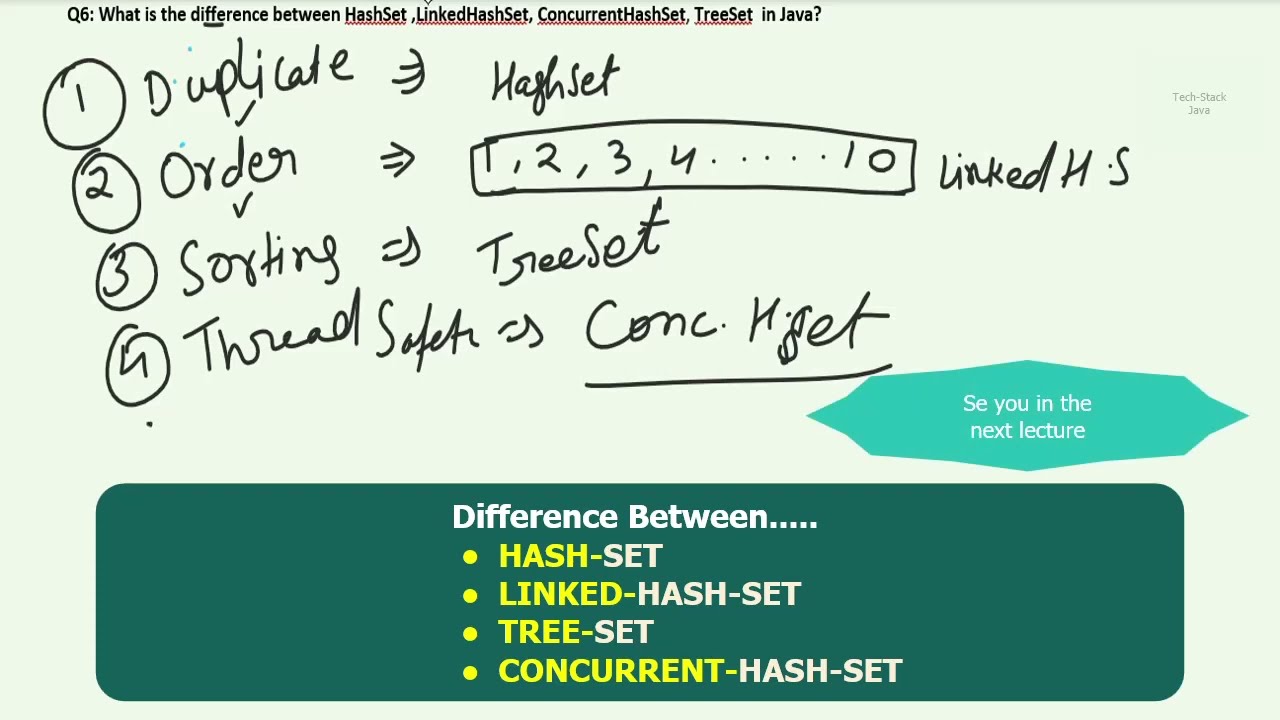 Q6: What is the difference between HashSet ,LinkedHashSet, ConcurrentHashSet, TreeSet in Java?
1 Duplicate => HashSet
Tech-Stack
Java
2 Order => 1, 2, 3, 4 . . . . . 10 Linked H.S
3 Sorting => TreeSet
4 Thread Safety => Conc. H.Set
Se you in the
next lecture
Difference Between.....
● HASH-SET
● LINKED-HASH-SET
● TREE-SET
● CONCURRENT-HASH-SET